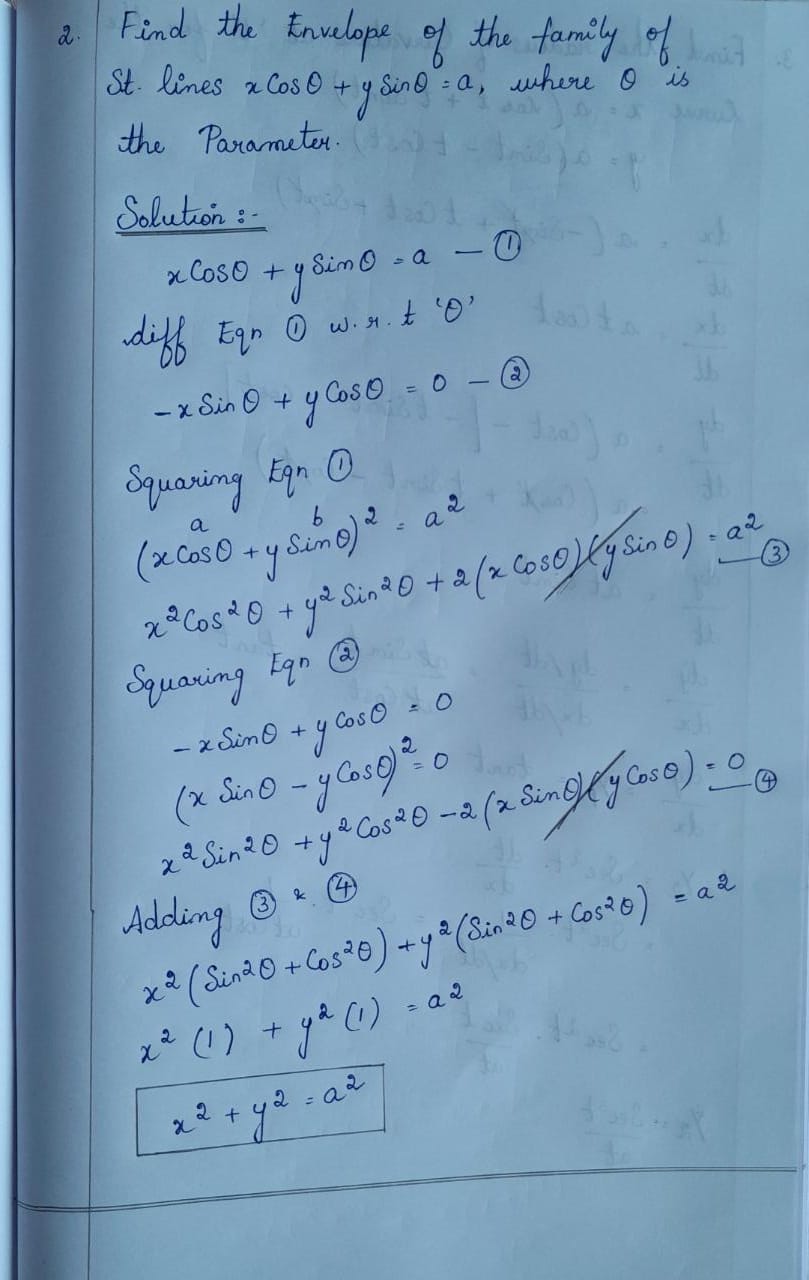 2. Find the Envelope of the family of
St. lines x Cosθ + y Sinθ = a, where θ is
the Parameter.
Solution :-
x Cosθ + y Sinθ = a — ①
diff Eqn ① w.r.t 'θ'
-x Sinθ + y Cosθ = 0 — ②
Squaring Eqn ①
a b
(x Cosθ + y Sinθ)² = a²
x² Cos²θ + y² Sin²θ + 2(x Cosθ)(y Sinθ) = a² — ③
Squaring Eqn ②
-x Sinθ + y Cosθ = 0
(x Sinθ - y Cosθ)² = 0
x² Sin²θ + y² Cos²θ - 2(x Sinθ)(y Cosθ) = 0 — ④
Adding ③ & ④
x² (Sin²θ + Cos²θ) + y² (Sin²θ + Cos²θ) = a²
x² (1) + y² (1) = a²
x² + y² = a²